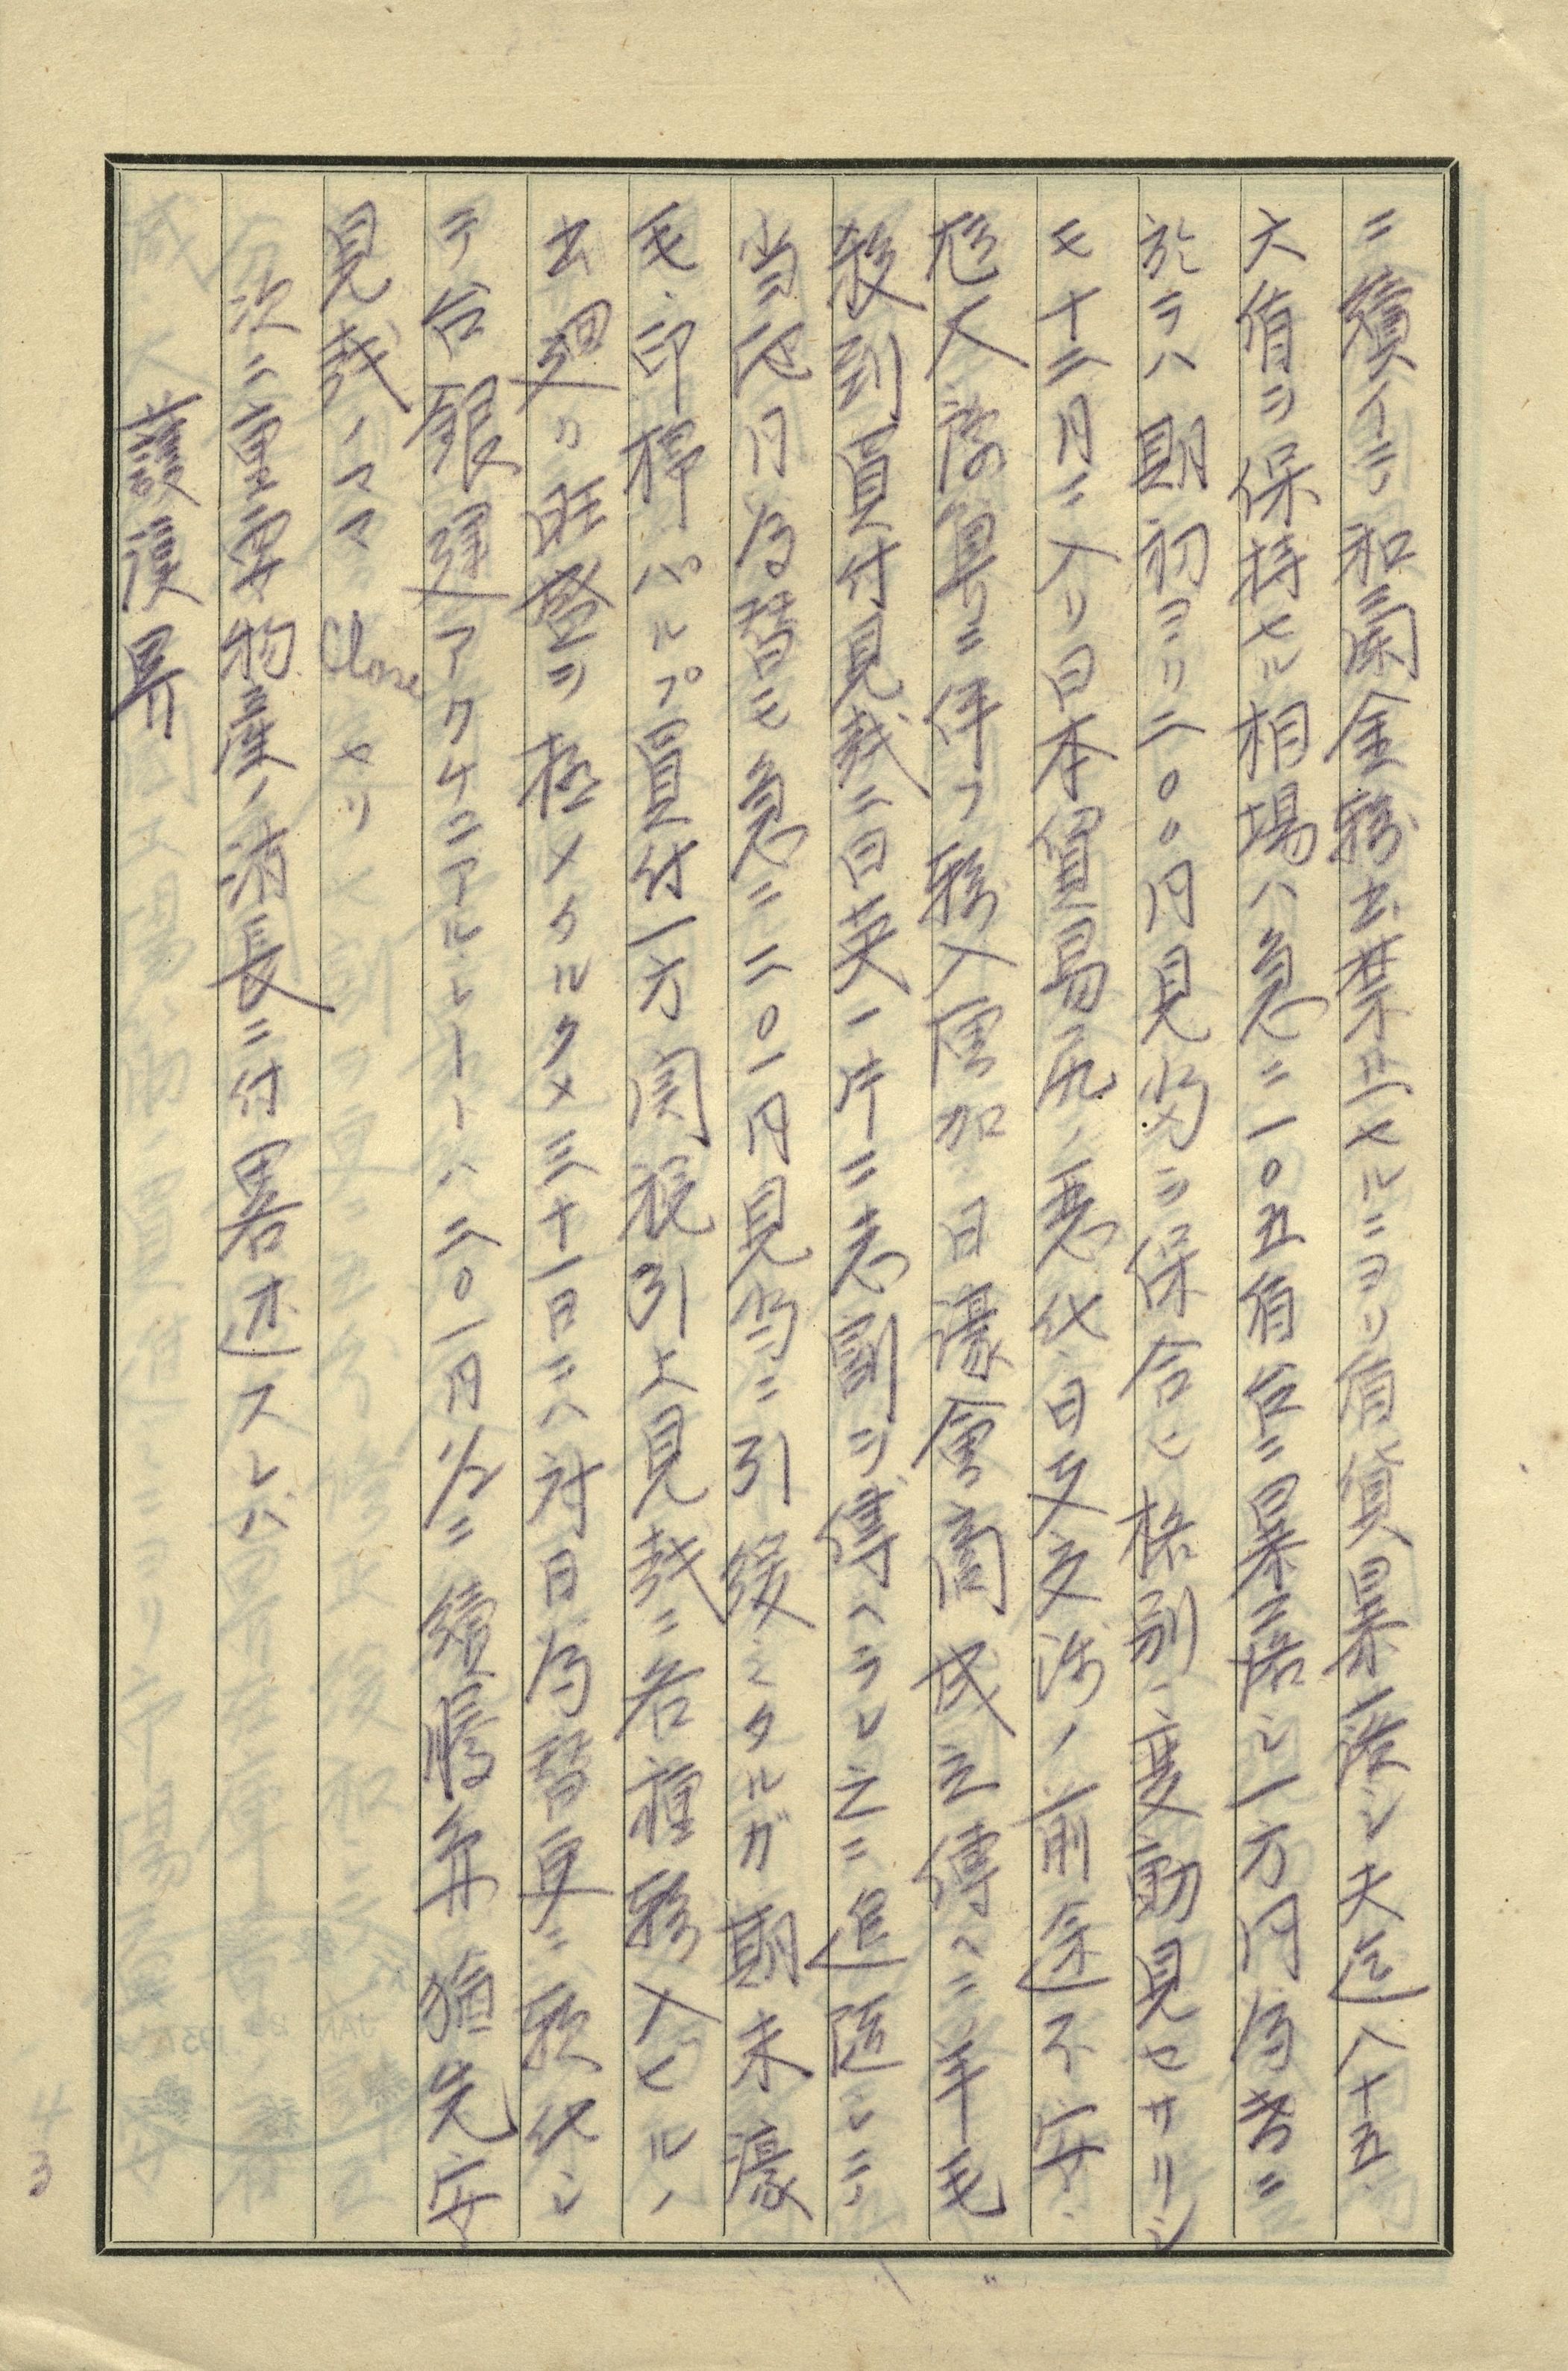 ニ續イテ和蘭金輸出禁止セルニヨリ盾貨暴落シ夫迄八十五
大盾ヲ保持セル相場ハ急ニ一〇五盾台ニ暴落シ一方円為替ニ
於テハ期初ヨリ二〇〇円見当ヲ保合ヒ格別ノ変動見セサリシ
モ十二月ニ入リ日本貿易尻ノ悪化、日支交渉ノ前途不安、
尨大豫算ニ伴フ輸入増加、日濠會商成立傳ヘラレ羊毛
殺到買付見越ニ日英一片二志割ヲ傳ヘラレ之ニ追随シテ
当地円為替モ急ニ二〇一円見当ニ引緩ミタルガ期末濠
毛、印棉パルプ買付一方関税引上見越ニ各種輸入ヒルノ
出廻リ旺盛ヲ極メタルタメ三十一日ニハ対日為替更ニ軟化シ
テ台銀建アウケニアルレートハ二〇一円1/2ニ續騰弁猶先安
見越ノママ Close セリ
次ニ重要物産ノ消長ニ付畧述スレバ
護謨界
43